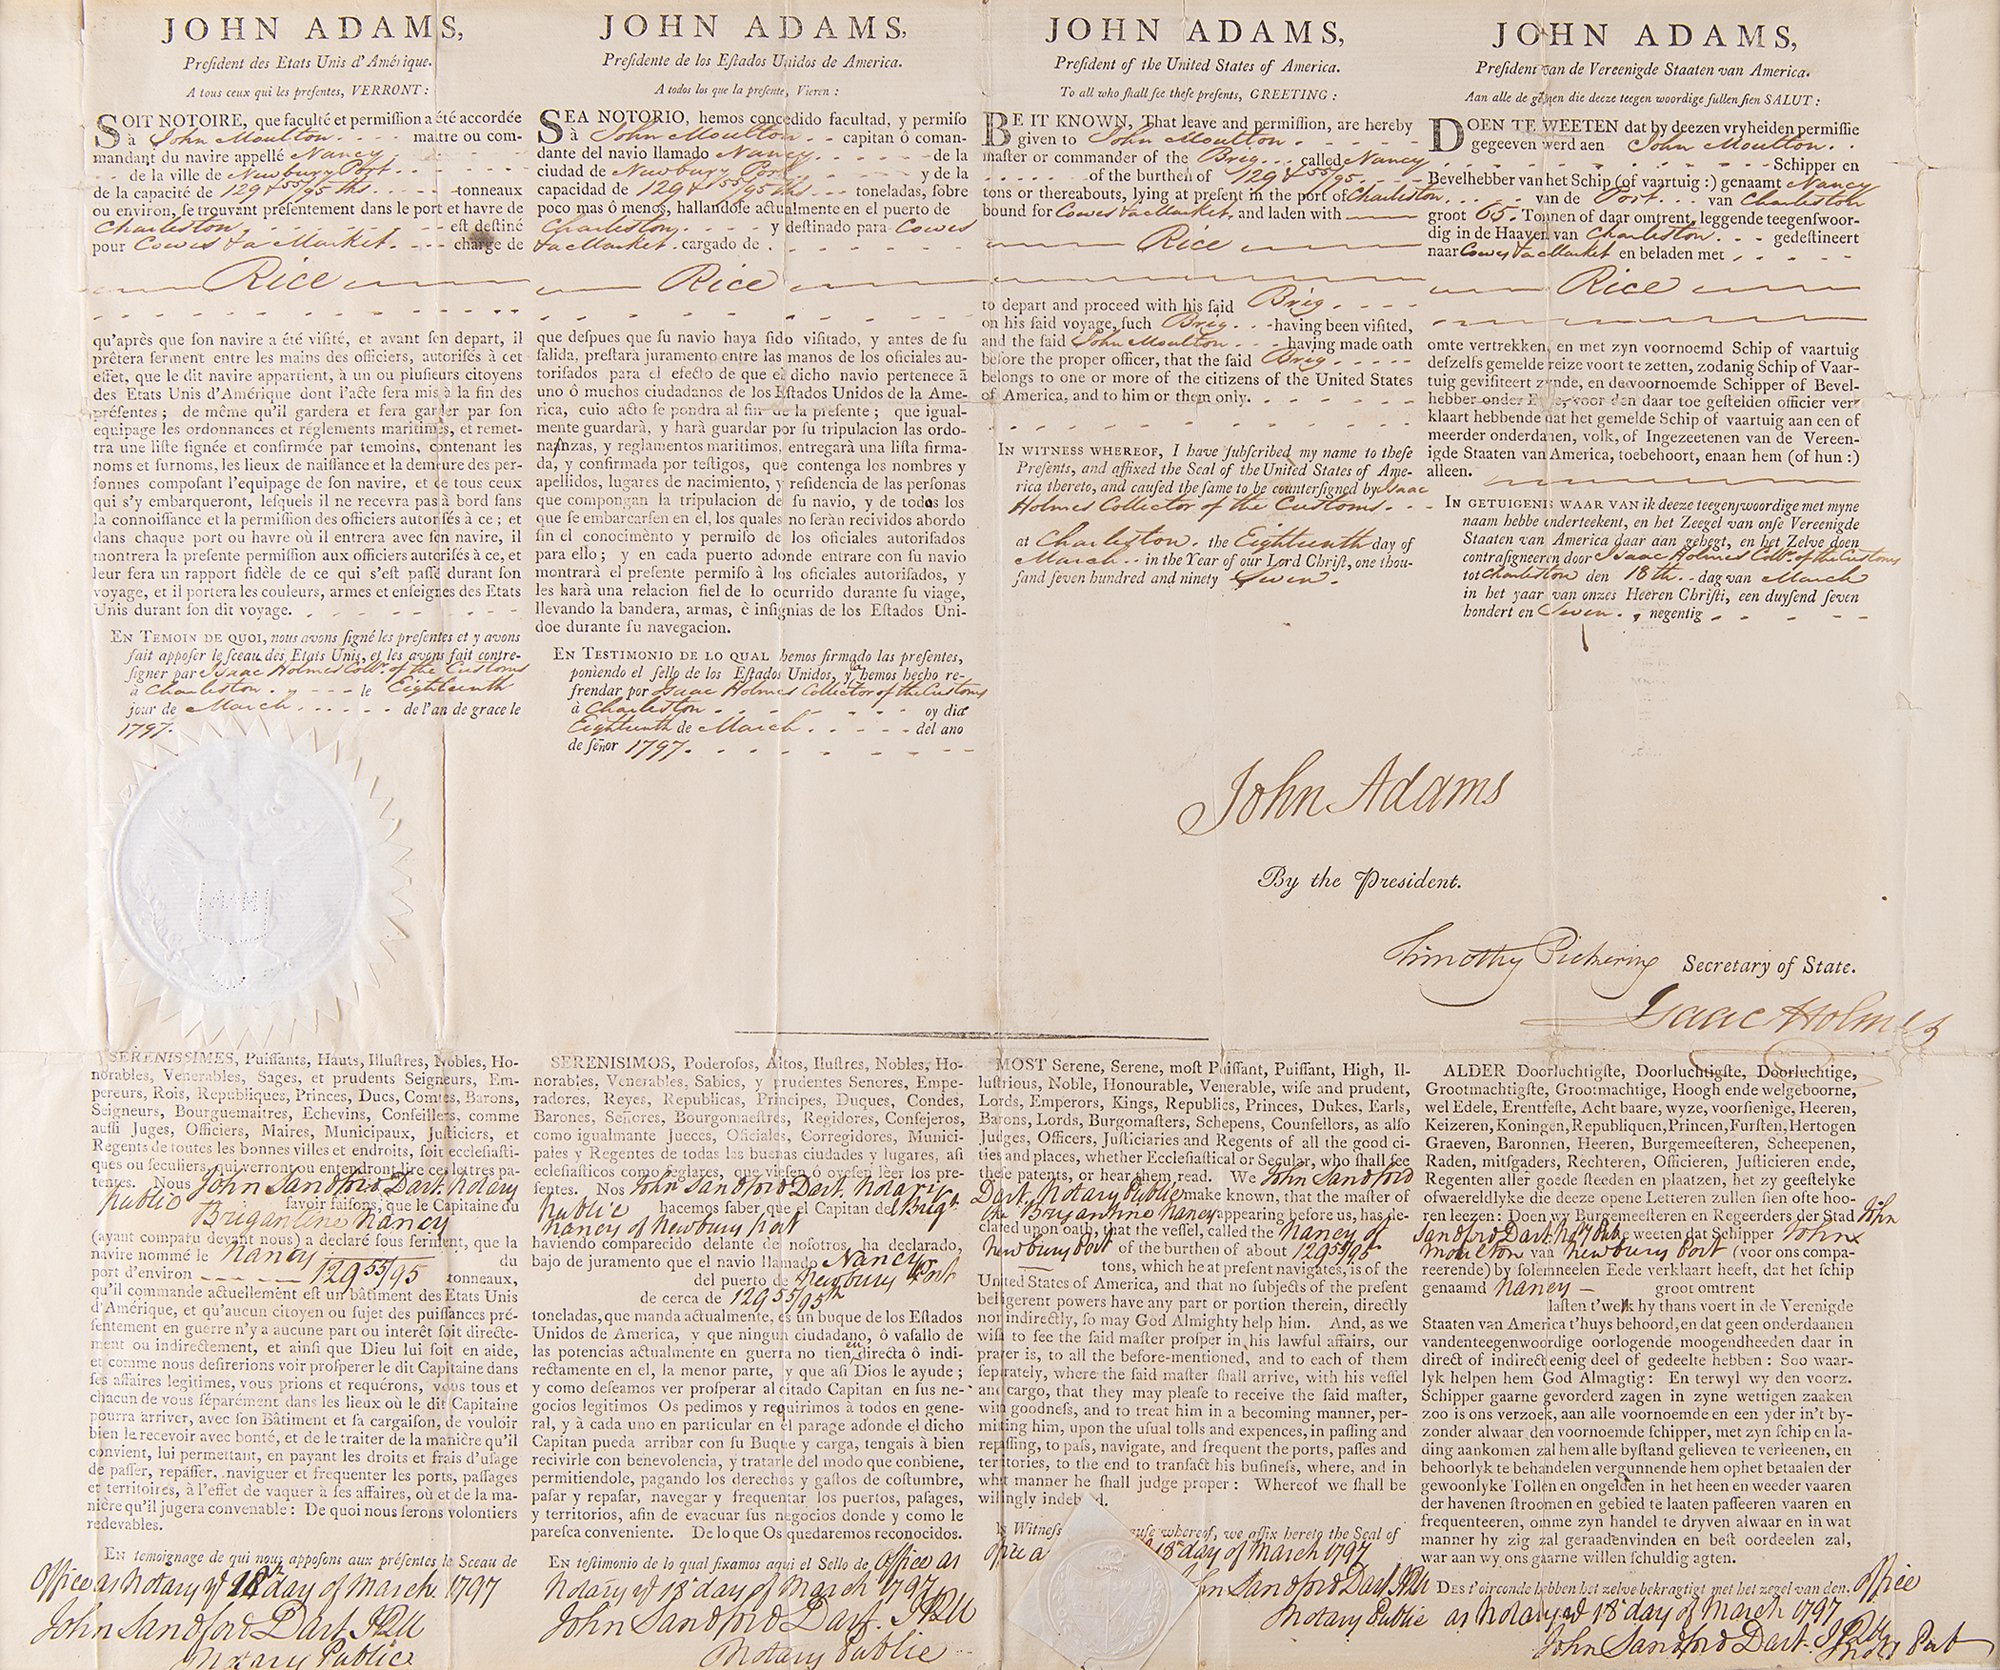 JOHN ADAMS,
President des Etats Unis d'Amérique.
A tous ceux qui les presentes, VERRONT:
SOIT NOTOIRE, que faculté et permission a été accordée
à John Moulton maitre ou com-
mandant du navire appellé Nancy
de la ville de Newbury Port
de la capacité de 129 & 55/95 ths tonneaux
ou environ, se trouvant présentement dans le port et havre de
Charleston est destiné
pour Cowes & a Market. chargé de
Rice
qu'après que son navire a été visité, et avant son depart, il
prêtera serment entre les mains des officiers, autorisés à cet
effet, que le dit navire appartient, à un ou plusieurs citoyens
des Etats Unis d'Amérique dont l'acte sera mis à la fin des
présentes; de même qu'il gardera et fera garder par son
equipage les ordonnances et réglements maritimes, et remet-
tra une liste signée et confirmée par temoins, contenant les
noms et surnoms, les lieux de naissance et la demeure des per-
sonnes composant l'equipage de son navire, et de tous ceux
qui s'y embarqueront, lesquels il ne recevra pas à bord sans
la connoissance et la permission des officiers autorisés à ce; et
dans chaque port ou havre où il entrera avec son navire, il
montrera la presente permission aux officiers autorisés à ce, et
leur fera un rapport fidèle de ce qui s'est passé durant son
voyage, et il portera les couleurs, armes et enseignes des Etats
Unis durant son dit voyage.
EN TEMOIN DE QUOI, nous avons signé les presentes et y avons
fait apposer le sceau des Etats Unis, et les avons fait contre-
signer par Isaac Holmes Collr. of the Customs
à Charleston. le Eighteenth
jour de March de l'an de grace le
1797.
JOHN ADAMS,
Presidente de los Estados Unidos de America.
A todos los que la presente, Vieren:
SEA NOTORIO, hemos concedido facultad, y permiso
à John Moulton capitan ô coman-
dante del navio llamado Nancy de la
ciudad de Newbury Port y de la
capacidad de 129 & 55/95 ths toneladas, sobre
poco mas ô menos, hallandose actualmente en el puerto de
Charleston. y destinado para Cowes
& a Market. cargado de
Rice
que despues que su navio haya sido visitado, y antes de su
salida, prestarà juramento entre las manos de los oficiales au-
torisados para el efecto de que el dicho navio pertenece ã
uno ô muchos ciudadanos de los Estados Unidos de la Ame-
rica, cuio acto se pondra al fin de la presente; que igual-
mente guardarà, y harà guardar por su tripulacion las ordo-
nanzas, y reglamentos maritimos, entregarà una lista firma-
da, y confirmada por testigos, que contenga los nombres y
apellidos, lugares de nacimiento, y residencia de las personas
que compongan la tripulacion de su navio, y de todos los
que se embarcarsen en el, los quales no seràn recividos abordo
sin el conocimento y permiso de los oficiales autorisados
para ello; y en cada puerto adonde entrare con su navio
montrarà el presente permiso à los oficiales autorisados, y
les harà una relacion fiel de lo ocurrido durante su viage,
llevando la bandera, armas, è insignias de los Estados Uni-
doe durante su navegacion.
EN TESTIMONIO DE LO QUAL hemos firmado las presentes,
poniendo el sello de los Estados Unidos, y la hemos hecho re-
frendar por Isaac Holmes Collector of the Customs
à Charleston oy dia
Eighteenth de March del ano
de señor 1797.
JOHN ADAMS,
President of the United States of America.
To all who shall see these presents, GREETING:
BE IT KNOWN, That leave and permission, are hereby
given to John Moulton
master or commander of the Brig called Nancy
of the burthen of 129 & 55/95
tons or thereabouts, lying at present in the port of Charleston
bound for Cowes & a Market, and laden with
Rice
to depart and proceed with his said Brig
on his said voyage, such Brig having been visited,
and the said John Moulton having made oath
before the proper officer, that the said Brig
belongs to one or more of the citizens of the United States
of America, and to him or them only.
IN WITNESS WHEREOF, I have subscribed my name to these
Presents, and affixed the Seal of the United States of Ame-
rica thereto, and caused the same to be countersigned by Isaac
Holmes Collector of the Customs.
at Charleston. the Eighteenth day of
March in the Year of our Lord Christ, one thou-
sand seven hundred and ninety Seven.
JOHN ADAMS,
President van de Vereenigde Staaten van America.
Aan alle de geenen die deeze teegen woordige sullen sien SALUT:
DOEN TE WEETEN dat by deezen vryheiden permissie
gegeeven werd aen John Moulton
Schipper en
Bevelhebber van het Schip (of vaartuig:) genaamt Nancy
van de Port van Charleston
groot 65. Tonnen of daar omtrent, leggende teegenswoor-
dig in de Haaven van Charleston gedestineert
naar Cowes & a Market en beladen met
Rice
omte vertrekken, en met zyn voornoemd Schip of vaartuig
deszelfs gemelde reize voort te zetten, zodanig Schip of Vaar-
tuig gevisiteert zynde, en de voornoemde Schipper of Bevel-
hebber onder Eede, voor den daar toe gestelden officier ver-
klaart hebbende dat het gemelde Schip of vaartuig aan een of
meerder onderdanen, volk, of Ingezeetenen van de Vereen-
igde Staaten van America, toebehoort, enaan hem (of hun:)
alleen.
IN GETUIGENS WAAR VAN ik deeze teegenswoordige met myne
naam hebbe onderteekent, en het Zeegel van onse Vereenigde
Staaten van America daar aan gehegt, en het Zelve doen
contrasigneeren door Isaac Holmes Collr. of the Customs
tot Charleston den 18th. dag van March
in het yaar van onzes Heeren Christi, een duysend seven
hondert en Seven negentig
John Adams
By the President.
Timothy Pickering Secretary of State.
Isaac Holmes
SERENISSIMES, Puissants, Hauts, Illustres, Nobles, Ho-
norables, Venerables, Sages, et prudents Seigneurs, Em-
pereurs, Rois, Republiques, Princes, Ducs, Comtes, Barons,
Seigneurs, Bourguemaitres, Echevins, Conseillers, comme
aussi Juges, Officiers, Maires, Municipaux, Justiciers, et
Regents de toutes les bonnes villes et endroits, soit ecclesiasti-
ques ou seculiers, qui verront ou entendront lire ces lettres pa-
tentes. Nous John Sandford Dart. Notary
Public savoir faisons, que le Capitaine du
Brigantine Nancy
(ayant comparu devant nous) a declaré sous serment, que la
navire nommé le Nancy du
port d'environ 129 55/95 tonneaux,
qu'il commande actuellement est un bâtiment des Etats Unis
d'Amérique, et qu'aucun citoyen ou sujet des puissances pré-
sentement en guerre n'y a aucune part ou interêt soit directe-
ment ou indirectement, et ainsi que Dieu lui soit en aide,
et comme nous desirerions voir prosperer le dit Capitaine dans
ses affaires legitimes, vous prions et requérons, vous tous et
chacun de vous séparément dans les lieux où le dit Capitaine
pourra arriver, avec son Bâtiment et sa cargaison, de vouloir
bien le recevoir avec bonté, et de le traiter de la manière qu'il
convient, lui permettant, en payant les droits et frais d'usage
de passer, repasser, naviguer et frequenter les ports, passages
et territoires, à l'effet de vaquer à ses affaires, où et de la ma-
nière qu'il jugera convenable: De quoi nous serons volontiers
redevables.
En temoignage de qui nous apposons aux présentes le Sceau de
Office as Notary ys 18th day of March. 1797
John Sandford Dart JPQU
Notary Public
SERENISIMOS, Poderosos, Altos, Ilustres, Nobles, Ho-
norables, Venerables, Sabios, y prudentes Senores, Empe-
radores, Reyes, Republicas, Principes, Duques, Condes,
Barones, Señores, Bourgomaestres, Regidores, Consejeros,
como igualmante Jueces, Oficiales, Corregidores, Munici-
pales y Regentes de todas las buenas ciudades y lugares, asi
eclesiasticos como seglares, que viesen ó oyesen leer los pre-
sentes. Nos John Sandford Dart. Notary
Public hacemos saber que el Capitan del Brigt.
Nancy of Newbury port
haviendo comparecido delante de nosotros, ha declarado,
bajo de juramento que el navio llamado Nancy
del puerto de Newbury Port
de cerca de 129 55/95th
toneladas, que manda actualmente, es un buque de los Estados
Unidos de America, y que ningun ciudadano, ô vasallo de
las potencias actualmente en guerra no tienen directa ô indi-
rectamente en el, la menor parte, y que asi Dios le ayude;
y como deseamos ver prosperar al citado Capitan en sus ne-
gocios legitimos Os pedimos y requirimos à todos en gene-
ral, y à cada uno en particular en el parage adonde el dicho
Capitan pueda arribar con su Buque y carga, tengais à bien
recivirle con benevolencia, y tratarle del modo que conbiene,
permitiendole, pagando los derechos y gastos de costumbre,
pasar y repasar, navegar y frequentar los puertos, pasages,
y territorios, afin de evacuar sus negocios donde y como le
paresca conveniente. De lo que Os quedaremos reconocidos.
En testimonio de lo qual fixamos aqui el Sello de Office as
Notary ys 18th day of March 1797
John Sandford Dart. JPQU
Notary Public
MOST Serene, Serene, most Puissant, Puissant, High, Il-
lustrious, Noble, Honourable, Venerable, wise and prudent,
Lords, Emperors, Kings, Republics, Princes, Dukes, Earls,
Barons, Lords, Burgomasters, Schepens, Counsellors, as also
Judges, Officers, Justiciaries and Regents of all the good ci-
ties and places, whether Ecclesiastical or Secular, who shall see
these patents, or hear them read. We John Sandford
Dart, Notary Public make known, that the master of
the Brigantine Nancy appearing before us, has de-
clared upon oath, that the vessel, called the Nancy of
Newbury Port of the burthen of about 129 55/95
tons, which he at present navigates, is of the
United States of America, and that no subjects of the present
belligerent powers have any part or portion therein, directly
nor indirectly, so may God Almighty help him. And, as we
wish to see the said master prosper in his lawful affairs, our
prayer is, to all the before-mentioned, and to each of them
seperately, where the said master shall arrive, with his vessel
and cargo, that they may please to receive the said master,
with goodness, and to treat him in a becoming manner, per-
mitting him, upon the usual tolls and expences, in passing and
repassing, to pass, navigate, and frequent the ports, passes and
territories, to the end to transact his business, where, and in
what manner he shall judge proper: Whereof we shall be
willingly indebted.
In Witness cause whereof, we affix hereto the Seal of
Office a 18th day of March 1797
John Sandford Dart JPQU
Notary Public
ALDER Doorluchtigste, Doorluchtigste, Doorluchtige,
Grootmachtigste, Grootmachtige, Hoogh ende welgeboorne,
wel Edele, Erentfeste, Acht baare, wyze, voorsienige, Heeren,
Keizeren, Koningen, Republiquen, Princen, Fursten, Hertogen
Graeven, Baronnen, Heeren, Burgemeesteren, Scheepenen,
Raden, mitsgaders, Rechteren, Officieren, Justicieren ende,
Regenten aller goede steeden en plaatzen, het zy geestelyke
ofwaereldlyke die deeze opene Letteren zullen sien ofte hoo-
ren leezen: Doen wy Burgemeesteren en Regeerders der Stad John
Sandford Dart. Noty Pub. te weeten dat Schipper John
Moulton van Newbury Port (voor ons compa-
reerende) by solemneelen Eede verklaart heeft, dat het schip
genaamd Nancy groot omtrent
lasten t'welk hy thans voert in de Verenigde
Staaten van America t'huys behoord, en dat geen onderdaanen
vandenteegenwoordige oorlogende moogendheeden daar in
direct of indirect eenig deel of gedeelte hebben: Soo waar-
lyk helpen hem God Almagtig: En terwyl wy den voorz.
Schipper gaarne gevorderd zagen in zyne wettigen zaaken
zoo is ons verzoek, aan alle voornoemde en een yder in't by-
zonder alwaar den voornoemde schipper, met zyn schip en la-
ding aankomen zal hem alle bystand gelieven te verleenen, en
behoorlyk te behandelen vergunnende hem ophet betaalen der
gewoonlyke Tollen en ongelden in het heen en weeder vaaren
der havenen stroomen en gebied te laaten passeeren vaaren en
frequenteeren, omme zyn handel te dryven alwaar en in wat
manner hy zig zal geraadenvinden en best oordeelen zal,
war aan wy ons gaarne willen schuldig agten.
Des t'oirconde hebben het zelve bekragtigt met het zegel van den. Office
as Notary ys 18th day of March 1797
John Sandford Dart. JPQU